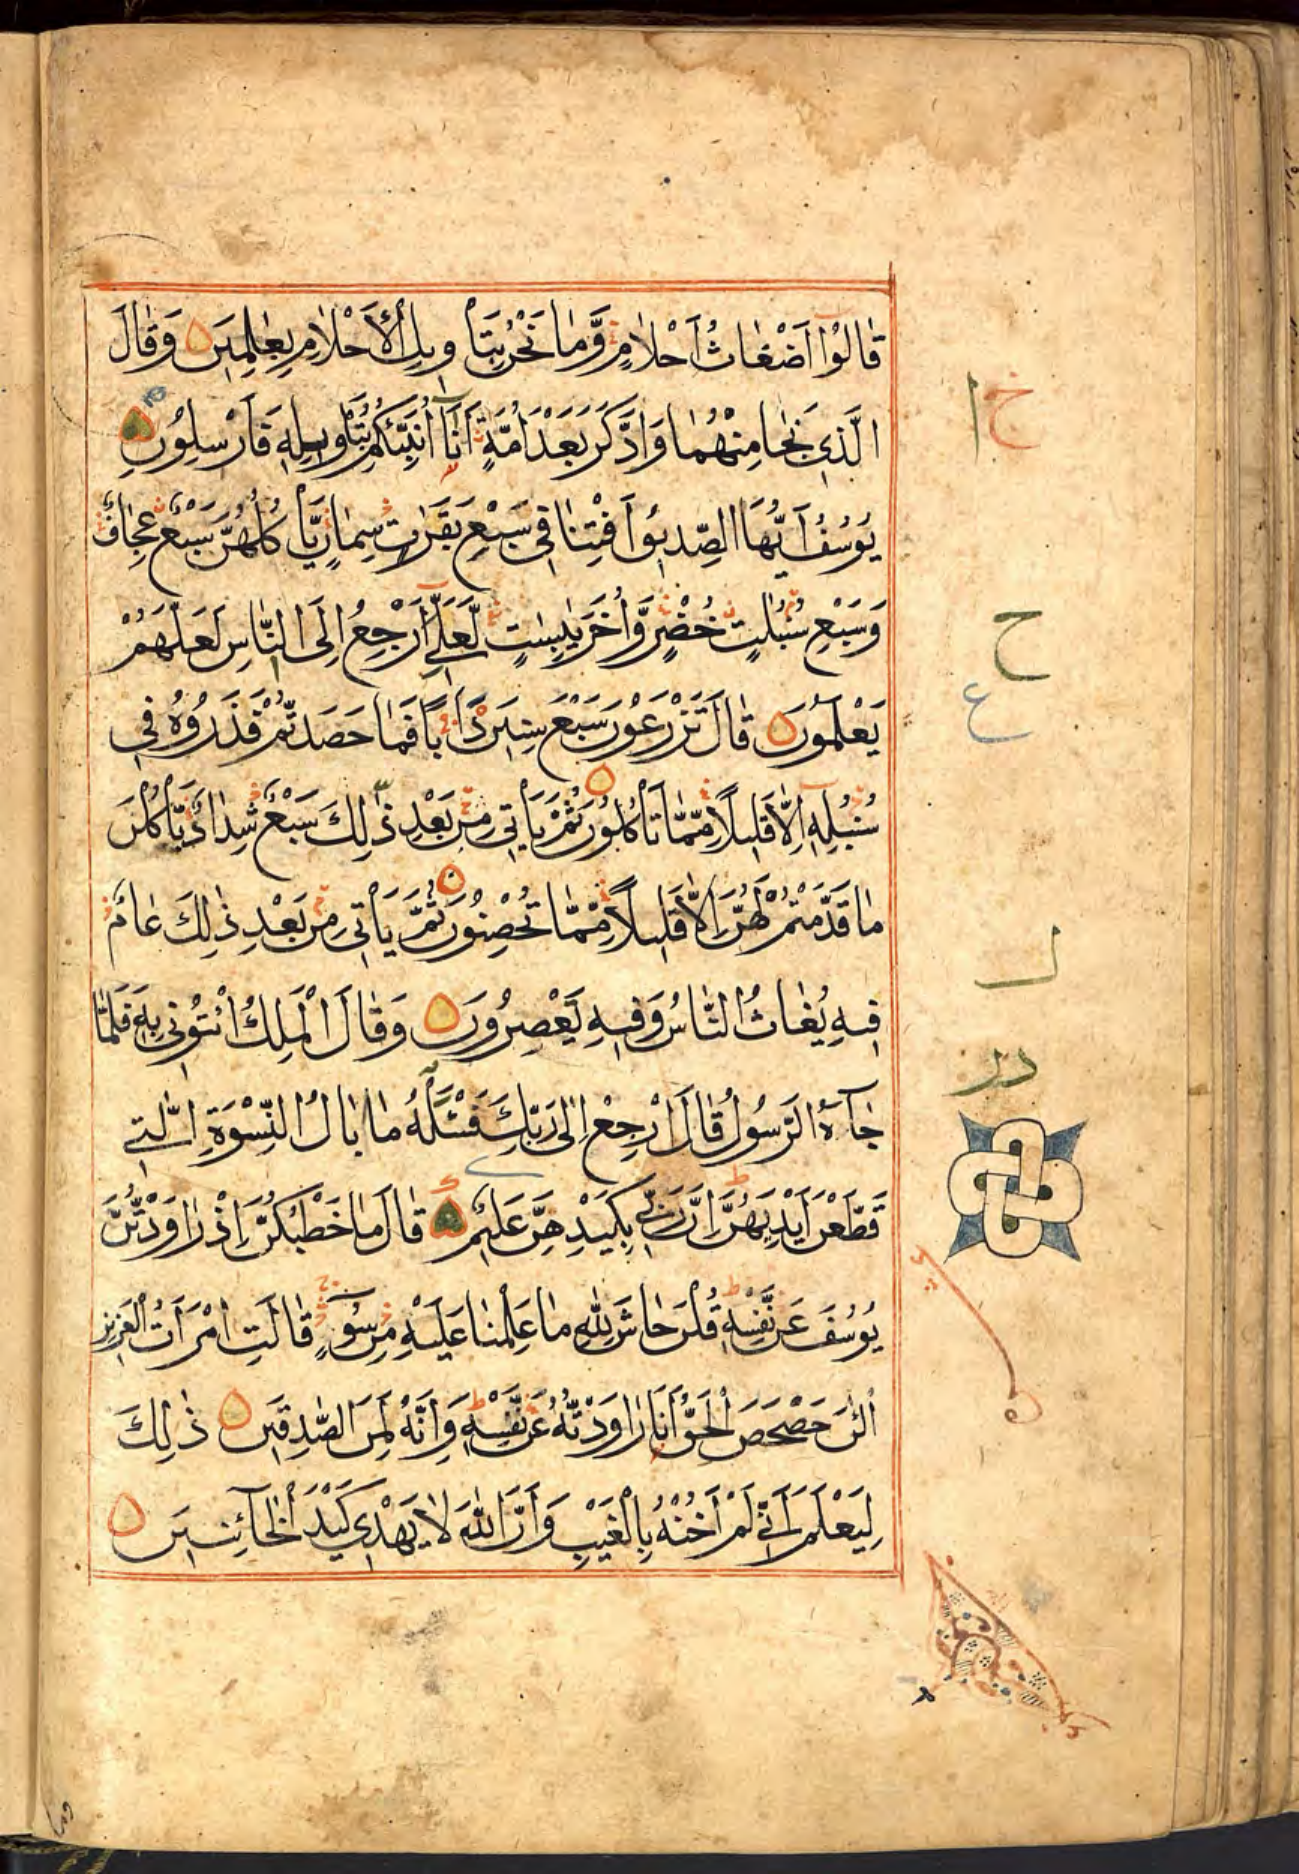 قَالُوْا اَضْغَاثُ اَحْلَامٍ وَّمَا نَحْنُ بِتَاْ وِيلِ الْاَحْلَامِ بِعٰلِمِيْنَ وَقَالَ
الَّذِي نَجَا مِنْهُمَا وَادَّكَرَ بَعْدَ اُمَّةٍ اَنَا۠ اُنَبِّئُكُمْ بِتَاْوِيلِهٖ فَاَرْسِلُوْنِ
يُوْسُفُ اَيُّهَا الصِّدِّيقُ اَفْتِنَا فِي سَبْعِ بَقَرٰتٍ سِمَانٍ يَّاْكُلُهُنَّ سَبْعٌ عِجَافٌ
وَسَبْعِ سُنْبُلٰتٍ خُضْرٍ وَّاُخَرَ يٰبِسٰتٍ لَّعَلِّيْٓ اَرْجِعُ اِلَى النَّاسِ لَعَلَّهُمْ
يَعْلَمُوْنَ قَالَ تَزْرَعُوْنَ سَبْعَ سِنِيْنَ دَاَبًا فَمَا حَصَدْتُّمْ فَذَرُوْهُ فِي
سُنْبُلِهٖ اِلَّا قَلِيلًا مِّمَّا تَاْكُلُوْنَ ثُمَّ يَاْتِي مِنْ بَعْدِ ذٰلِكَ سَبْعٌ شِدَادٌ يَّاْكُلْنَ
مَا قَدَّمْتُمْ لَهُنَّ اِلَّا قَلِيلًا مِّمَّا تُحْصِنُوْنَ ثُمَّ يَاْتِي مِنْ بَعْدِ ذٰلِكَ عَامٌ
فِيهِ يُغَاثُ النَّاسُ وَفِيهِ يَعْصِرُوْنَ وَقَالَ الْمَلِكُ ائْتُوْنِي بِهٖ فَلَمَّا
جَآءَهُ الرَّسُوْلُ قَالَ ارْجِعْ اِلٰى رَبِّكَ فَسْئَلْهُ مَا بَالُ النِّسْوَةِ الّٰتِي
قَطَّعْنَ اَيْدِيَهُنَّ اِنَّ رَبِّي بِكَيْدِهِنَّ عَلِيمٌ قَالَ مَا خَطْبُكُنَّ اِذْ رَاوَدْتُّنَّ
يُوْسُفَ عَنْ نَّفْسِهٖ قُلْنَ حَاشَ لِلّٰهِ مَا عَلِمْنَا عَلَيْهِ مِنْ سُوْٓءٍ قَالَتِ امْرَاَتُ الْعَزِيزِ
الْئٰنَ حَصْحَصَ الْحَقُّ اَنَا رَاوَدْتُّهُ عَنْ نَّفْسِهٖ وَاِنَّهُ لَمِنَ الصّٰدِقِيْنَ ذٰلِكَ
لِيَعْلَمَ اَنِّي لَمْ اَخُنْهُ بِالْغَيْبِ وَاَنَّ اللّٰهَ لَا يَهْدِي كَيْدَ الْخَآئِنِيْنَ
ع